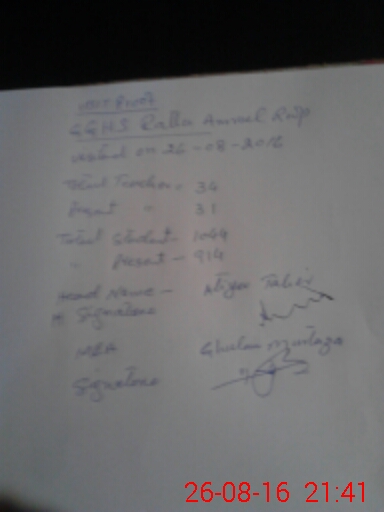 GGHS Ralla Annual
visited on 26-08-2016
Total Teacher = 34
Present " 31
Total Student - 1044
" Present - 914
Head Name - Atiya Tahir
Signature
MEA Ghulam Murtaza
Signature
26-08-16 21:41